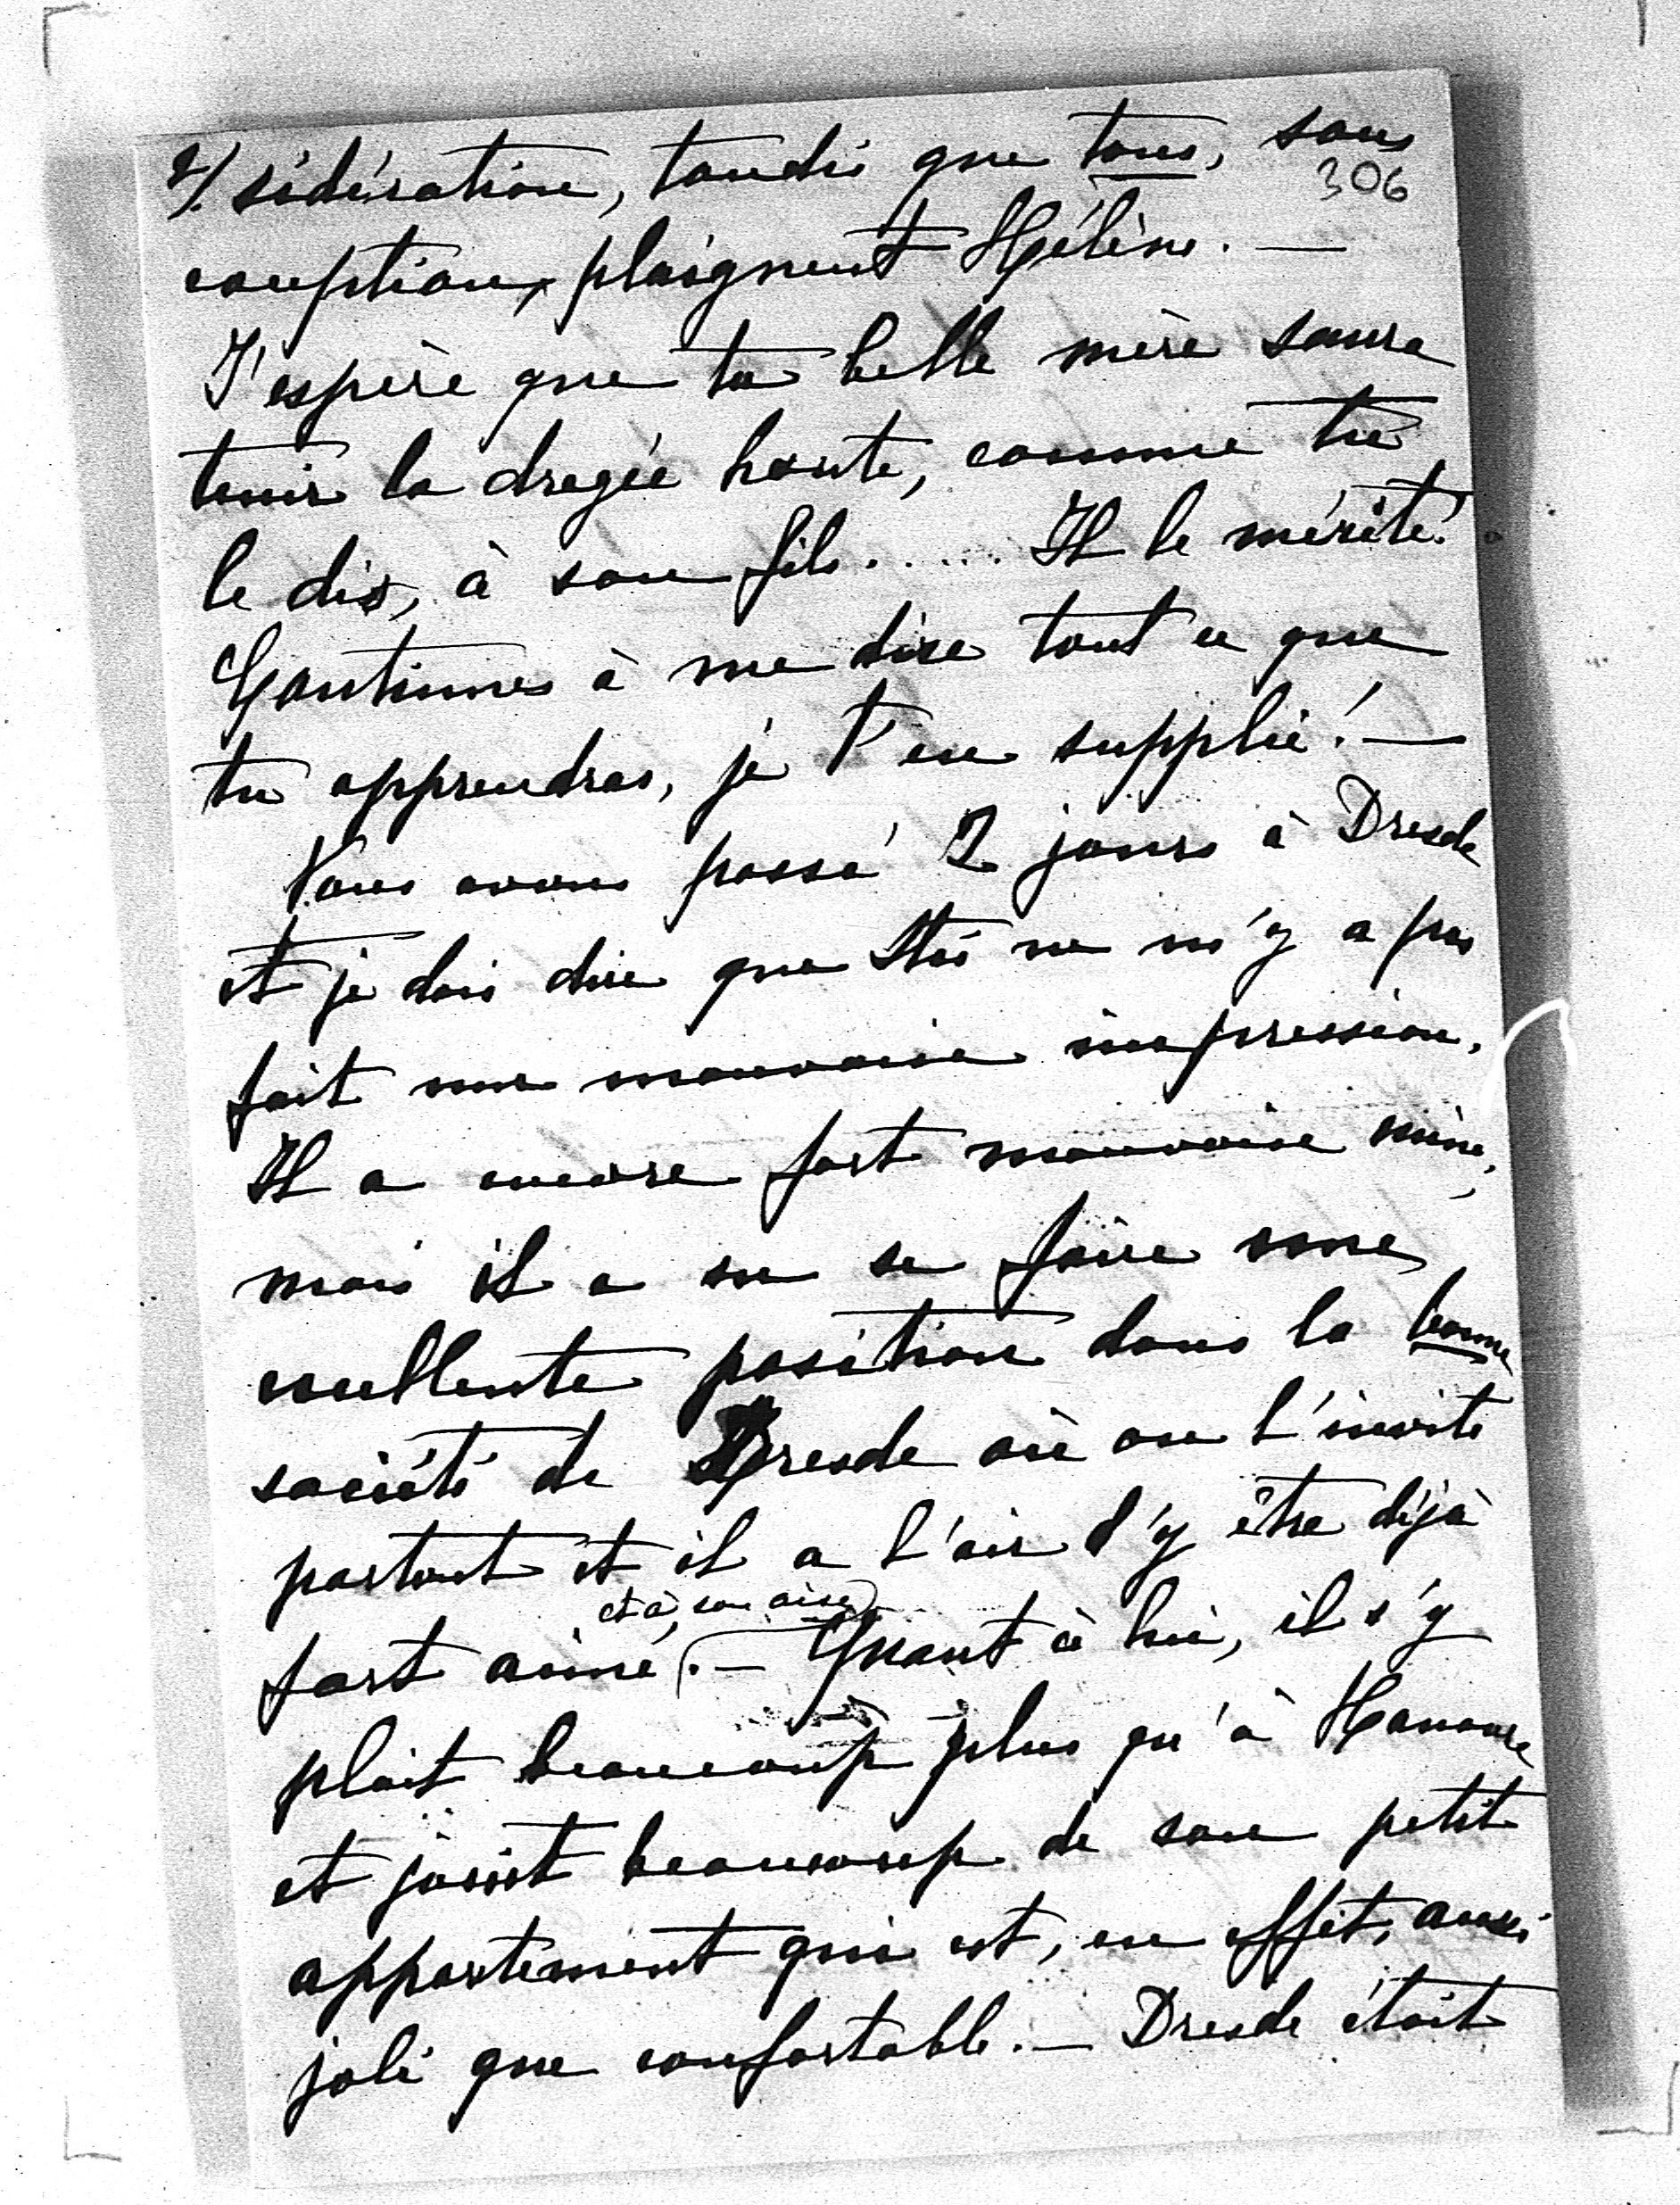 2/. sidération, tandis que tous, sans
306
exception, plaignent Hélène. —
J'espère que ta belle mère saura
tenir la dragée haute, comme tu
le dis, à son fils..... Il le mérite!
Continues à me dire tout ce que
tu apprendras, je t'en supplie! —
Nous avons passé 2 jours à Dresde
et je dois dire que ne m'y a pas
fait une mauvaise impression.
Il a encore fort mauvaise mine,
mais il a su se faire une
excellente position dans la bonne
société de Dresde où on l'invite
partout et il a l'air d'y être déjà
et à son aise
fort aimé. — Quant à lui, il s'y
plait beaucoup plus qu'à Hanovre
et jouit beaucoup de son petit
appartement qui est, en effet, aussi
joli que confortable. — Dresde était